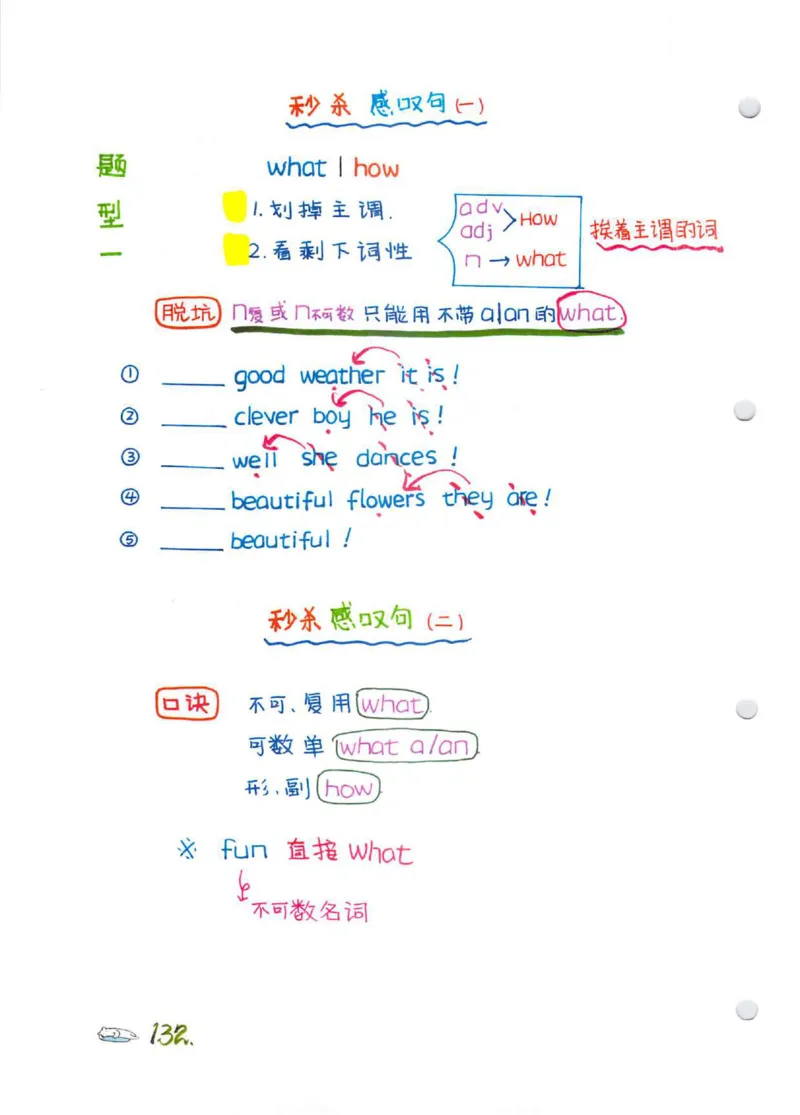 秒杀感叹句(一)
题型一
what | how
1.划掉主谓.
2.看剩下词性
adv
adj
How
n → what
挨着主谓的词
脱坑 n复或n不可数只能用不带a/an的what.
① ____ good weather it is!
② ____ clever boy he is!
③ ____ well she dances!
④ ____ beautiful flowers they are!
⑤ ____ beautiful!
秒杀感叹句(二)
口诀 不可、复用what.
可数单 what a/an
形、副 how
※ fun 直接 what
不可数名词
132.